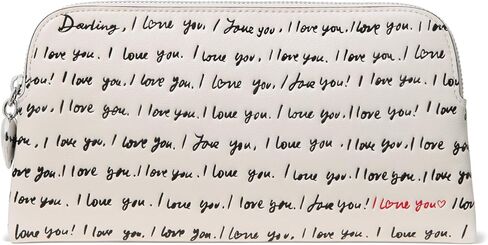 Darling, I love you, I love you, I love you.
I love you. I love you. I love you. I love you. I love you,
you! I love you, I love you. I love you, I love you, I love you.
I love you, I love you. I love you. I love you. I love you.
you, I love you. I love you. I love you, I love you. I love you.
love you. I love you. I love you. I love you. I love you. I love you.
love you. I love you. I love you. I love you. I love you! I love you♡
love you! I love you. I love you. I love you. I love you.